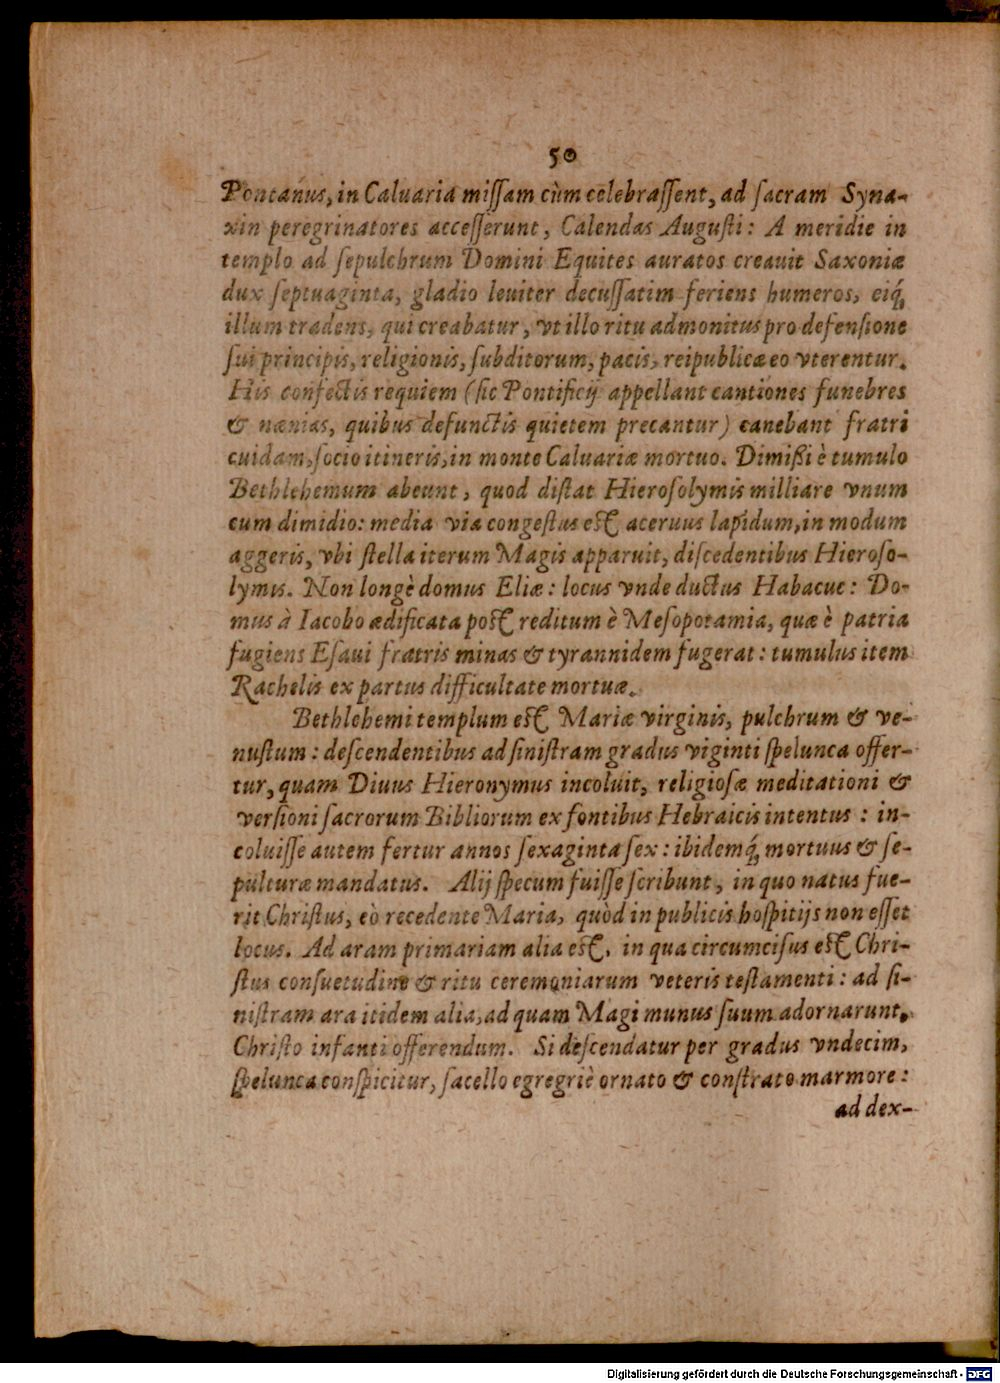 50
Pontanus, in Caluaria missam cùm celebrassent, ad sacram Syna-
xin peregrinatores accesserunt, Calendas Augusti: A meridie in
templo ad sepulchrum Domini Equites auratos creauit Saxoniæ
dux septuaginta, gladio leuiter decussatim feriens humeros, eiq́;
illum tradens, qui creabatur, vt illo ritu admonitus pro defensione
sui principis, religionis, subditorum, pacis, reipublicæ eo vterentur.
His confectis requiem (sic Pontificij appellant cantiones funebres
& nænias, quibus defunctis quietem precantur) canebant fratri
cuidam, socio itineris, in monte Caluariæ mortuo. Dimißi è tumulo
Bethlehemum abeunt, quod distat Hierosolymis milliare vnum
cum dimidio: media via congestus est aceruus lapidum, in modum
aggeris, vbi stella iterum Magis apparuit, discedentibus Hieroso-
lymis. Non longè domus Eliæ: locus vnde ductus Habacuc: Do-
mus à Iacobo ædificata post reditum è Mesopotamia, quæ è patria
fugiens Esaui fratris minas & tyrannidem fugerat: tumulus item
Rachelis ex partus difficultate mortuæ.
Bethlehemi templum est Mariæ virginis, pulchrum & ve-
nustum: descendentibus ad sinistram gradus viginti spelunca offer-
tur, quam Diuus Hieronymus incoluit, religiosæ meditationi &
versioni sacrorum Bibliorum ex fontibus Hebraicis intentus: in-
coluisse autem fertur annos sexaginta sex: ibidemq́; mortuus & se-
pulturæ mandatus. Alij specum fuisse scribunt, in quo natus fue-
rit Christus, eò recedente Maria, quòd in publicis hospitijs non esset
locus. Ad aram primariam alia est, in qua circumcisus est Chri-
stus consuetudine & ritu ceremoniarum veteris testamenti: ad si-
nistram ara itidem alia, ad quam Magi munus suum adornarunt,
Christo infanti offerendum. Si descendatur per gradus vndecim,
spelunca conspicitur, sacello egregriè ornato & constrato marmore:
ad dex-
Digitalisierung gefördert durch die Deutsche Forschungsgemeinschaft - DFG